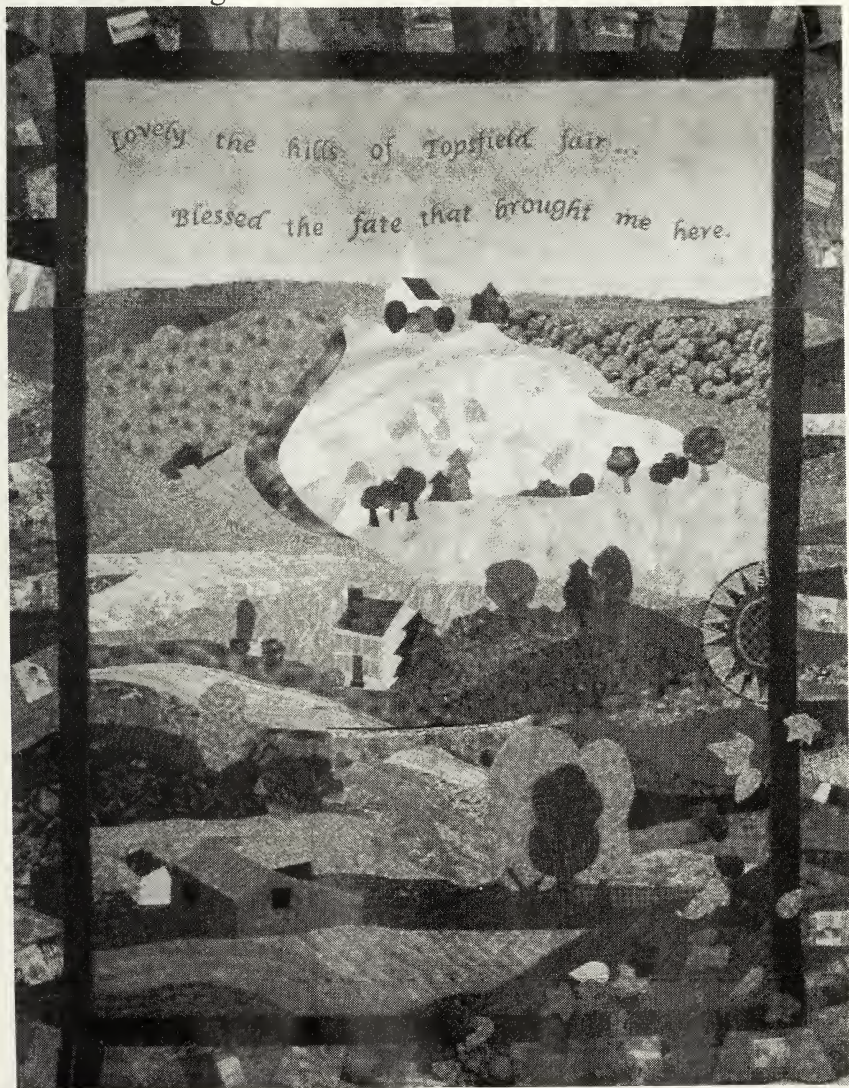 Lovely the hills of Topsfield fair...
Blessed the fate that brought me here.